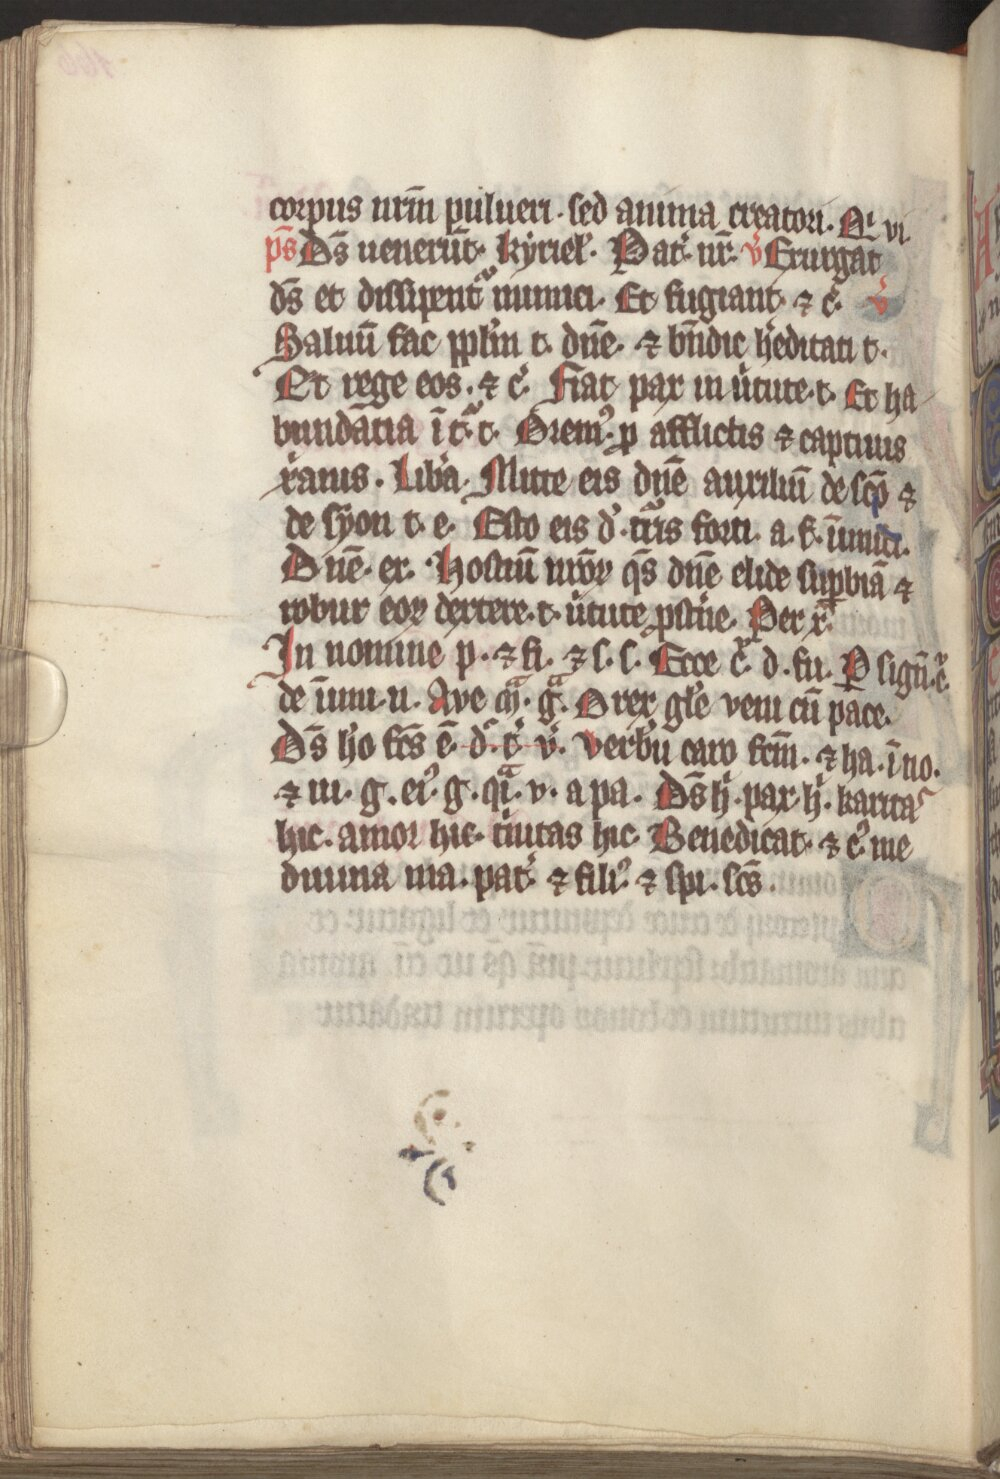 corpus nr̄m pulueri · sed anima creatori. Nͥ vi.
p̄s D̄s uenerūt · kyriel̓ · Pat̓ · nr̄ · v̓ Exurgat
d̄s et dissipent᷑ inimici · Et fugiant · ⁊ c̓ · v̓
Saluū fac ppl̓m t · dn̄e · ⁊ bn̄dic h̓editati t ·
Et rege eos · ⁊ c̓ · Fiat pax in u̓tute · t · Et ha
bundātia ī t᷑ · t · Orem᷒ · ꝓ afflictis ⁊ captiuis
x̓anis · Lib̓a · Mitte eis dn̄e auxiliū de sc̄o ⁊
de syon t · e · Esto eis d̓ · t᷑ris forti · a · f · īimici ·
Dn̄e · ex · Hostiū nr̄oꝝ q̄s dn̄e elide suꝑbiā ⁊
robur eoꝝ dextere · t · u̓tute ꝓst̓ne · Per x̄
In nomine p · ⁊ fi · ⁊ s · s · Ecce c᷑ · d · fu · P signū · c᷑ ·
de īimi · n · Ave mͣ · gͣ · O rex gl̓e veni cū pace ·
D̄s h̓o fc̄s ē · d · t̓ · v̓ · Verbū caro fc̄m · ⁊ ha · ī no ·
⁊ ui · g · ei᷒ · g · qͣ · v · a pa · D̄s h̓ · pax · h̓ · karitas
hic · amor hic · ciuitas hic · Benedicat · ⁊ c̓ · me
diuina ma · pat̓ · ⁊ fili᷒ · ⁊ spi · sc̄s ·